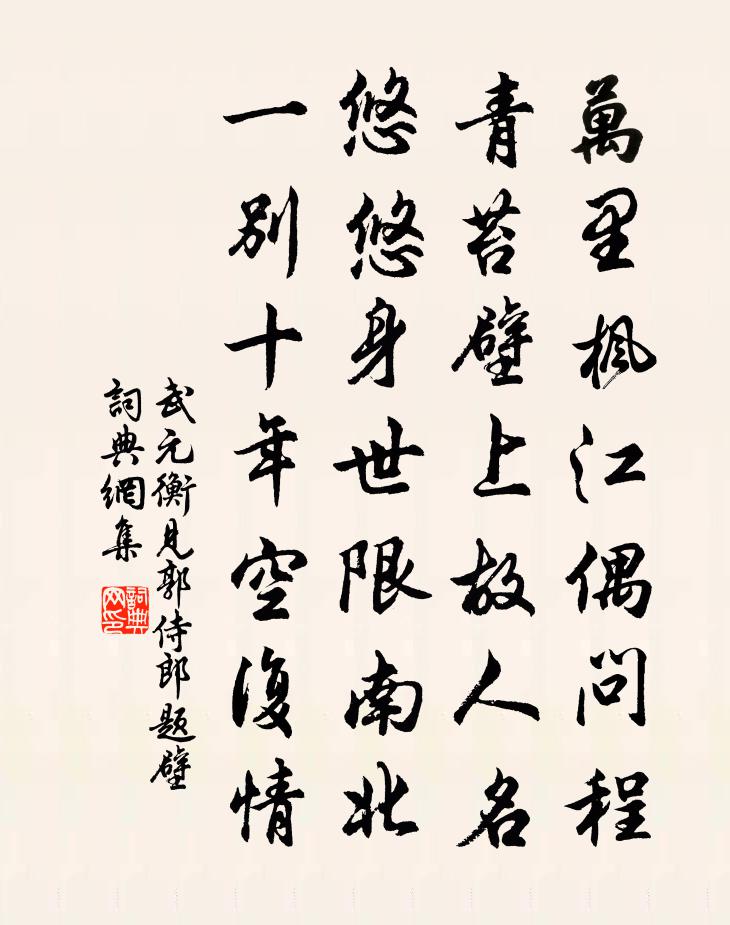 萬里楓江偶問程
青苔壁上故人名
悠悠身世限南北
一別十年空復情
武元衡見郭侍郎題壁
詞典網集
詞典网印